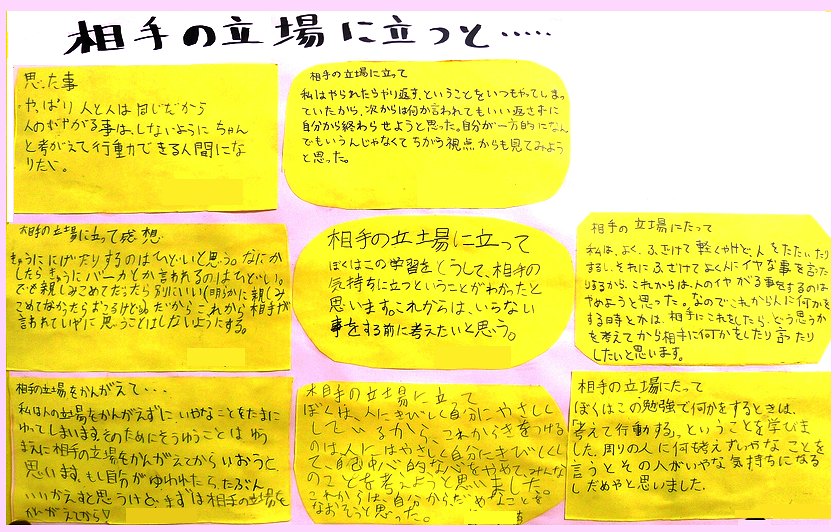 相手の立場に立つと・・・・・
思った事
やっぱり人と人は同じだから
人のいやがる事は、しないようにちゃん
と考がえて行動できる人間にな
りたい。
相手の立場に立って
私はやられたらやり返す、ということをいつもやってしまっ
ていたから、次からは何か言われてもいい返さずに
自分から終わらせようと思った。自分が一方的になん
でもいうんじゃなくてちがう視点からも見てみよう
と思った。
相手の立場に立って感想
きゅうににげだりするのはひどいと思う。なにか
したらきゅうにバーカとか言われるのはひどい。
でも親しみこめてだったら別にいい(明らかに親しみ
こめてなかったらおこるけど)。だからこれから相手が
言われていやに思うことはしないようにする。
相手の立場に立って
ぼくはこの学習をとうして、相手の
気持ちに立つということがわかったと
思います。これからは、いらない
事をする前に考えたいと思う。
相手の立場にたって
私は、よく、ふざけて軽くやけど、人をたたいたり
するし、それにふざけてよく人にイヤな事を言った
りするから、これからは、人のイヤがる事をするのは
やめようと思った。なのでこれから人に何かを
する時とかは、相手にこれをしたら、どう思うか
を考えてから相手に何かをしたり言ったり
したいと思います。
相手の立場をかんがえて・・・
私は人の立場をかんがえずに、いやなことをたまに
ゆってしまいます。そのためにそうゆうことは ゆう
まえに相手の立場をかんがえてからいおうと、
思います。もし自分がゆわれたら、たぶん、
いいかえすと思うけど、まずは相手の立場を
かんがえてから!
相手の立場に立って
ぼくは、人にきびしく自分にやさしく
しているから、これからきをつける
のは、人にはやさしく自分にきびしくし
て、自己中心的な心をやめて、みんな
のことを考えようと思いました。
これからは、自分からだめなことを。
なおそうと思った。
相手の立場にたって
ぼくはこの勉強で何かをするときは、
「考えて行動する」ということを学びま
した。周りの人に何も考えずいやなことを
言うとその人がいやな気持ちになる
しだめやと思いました。